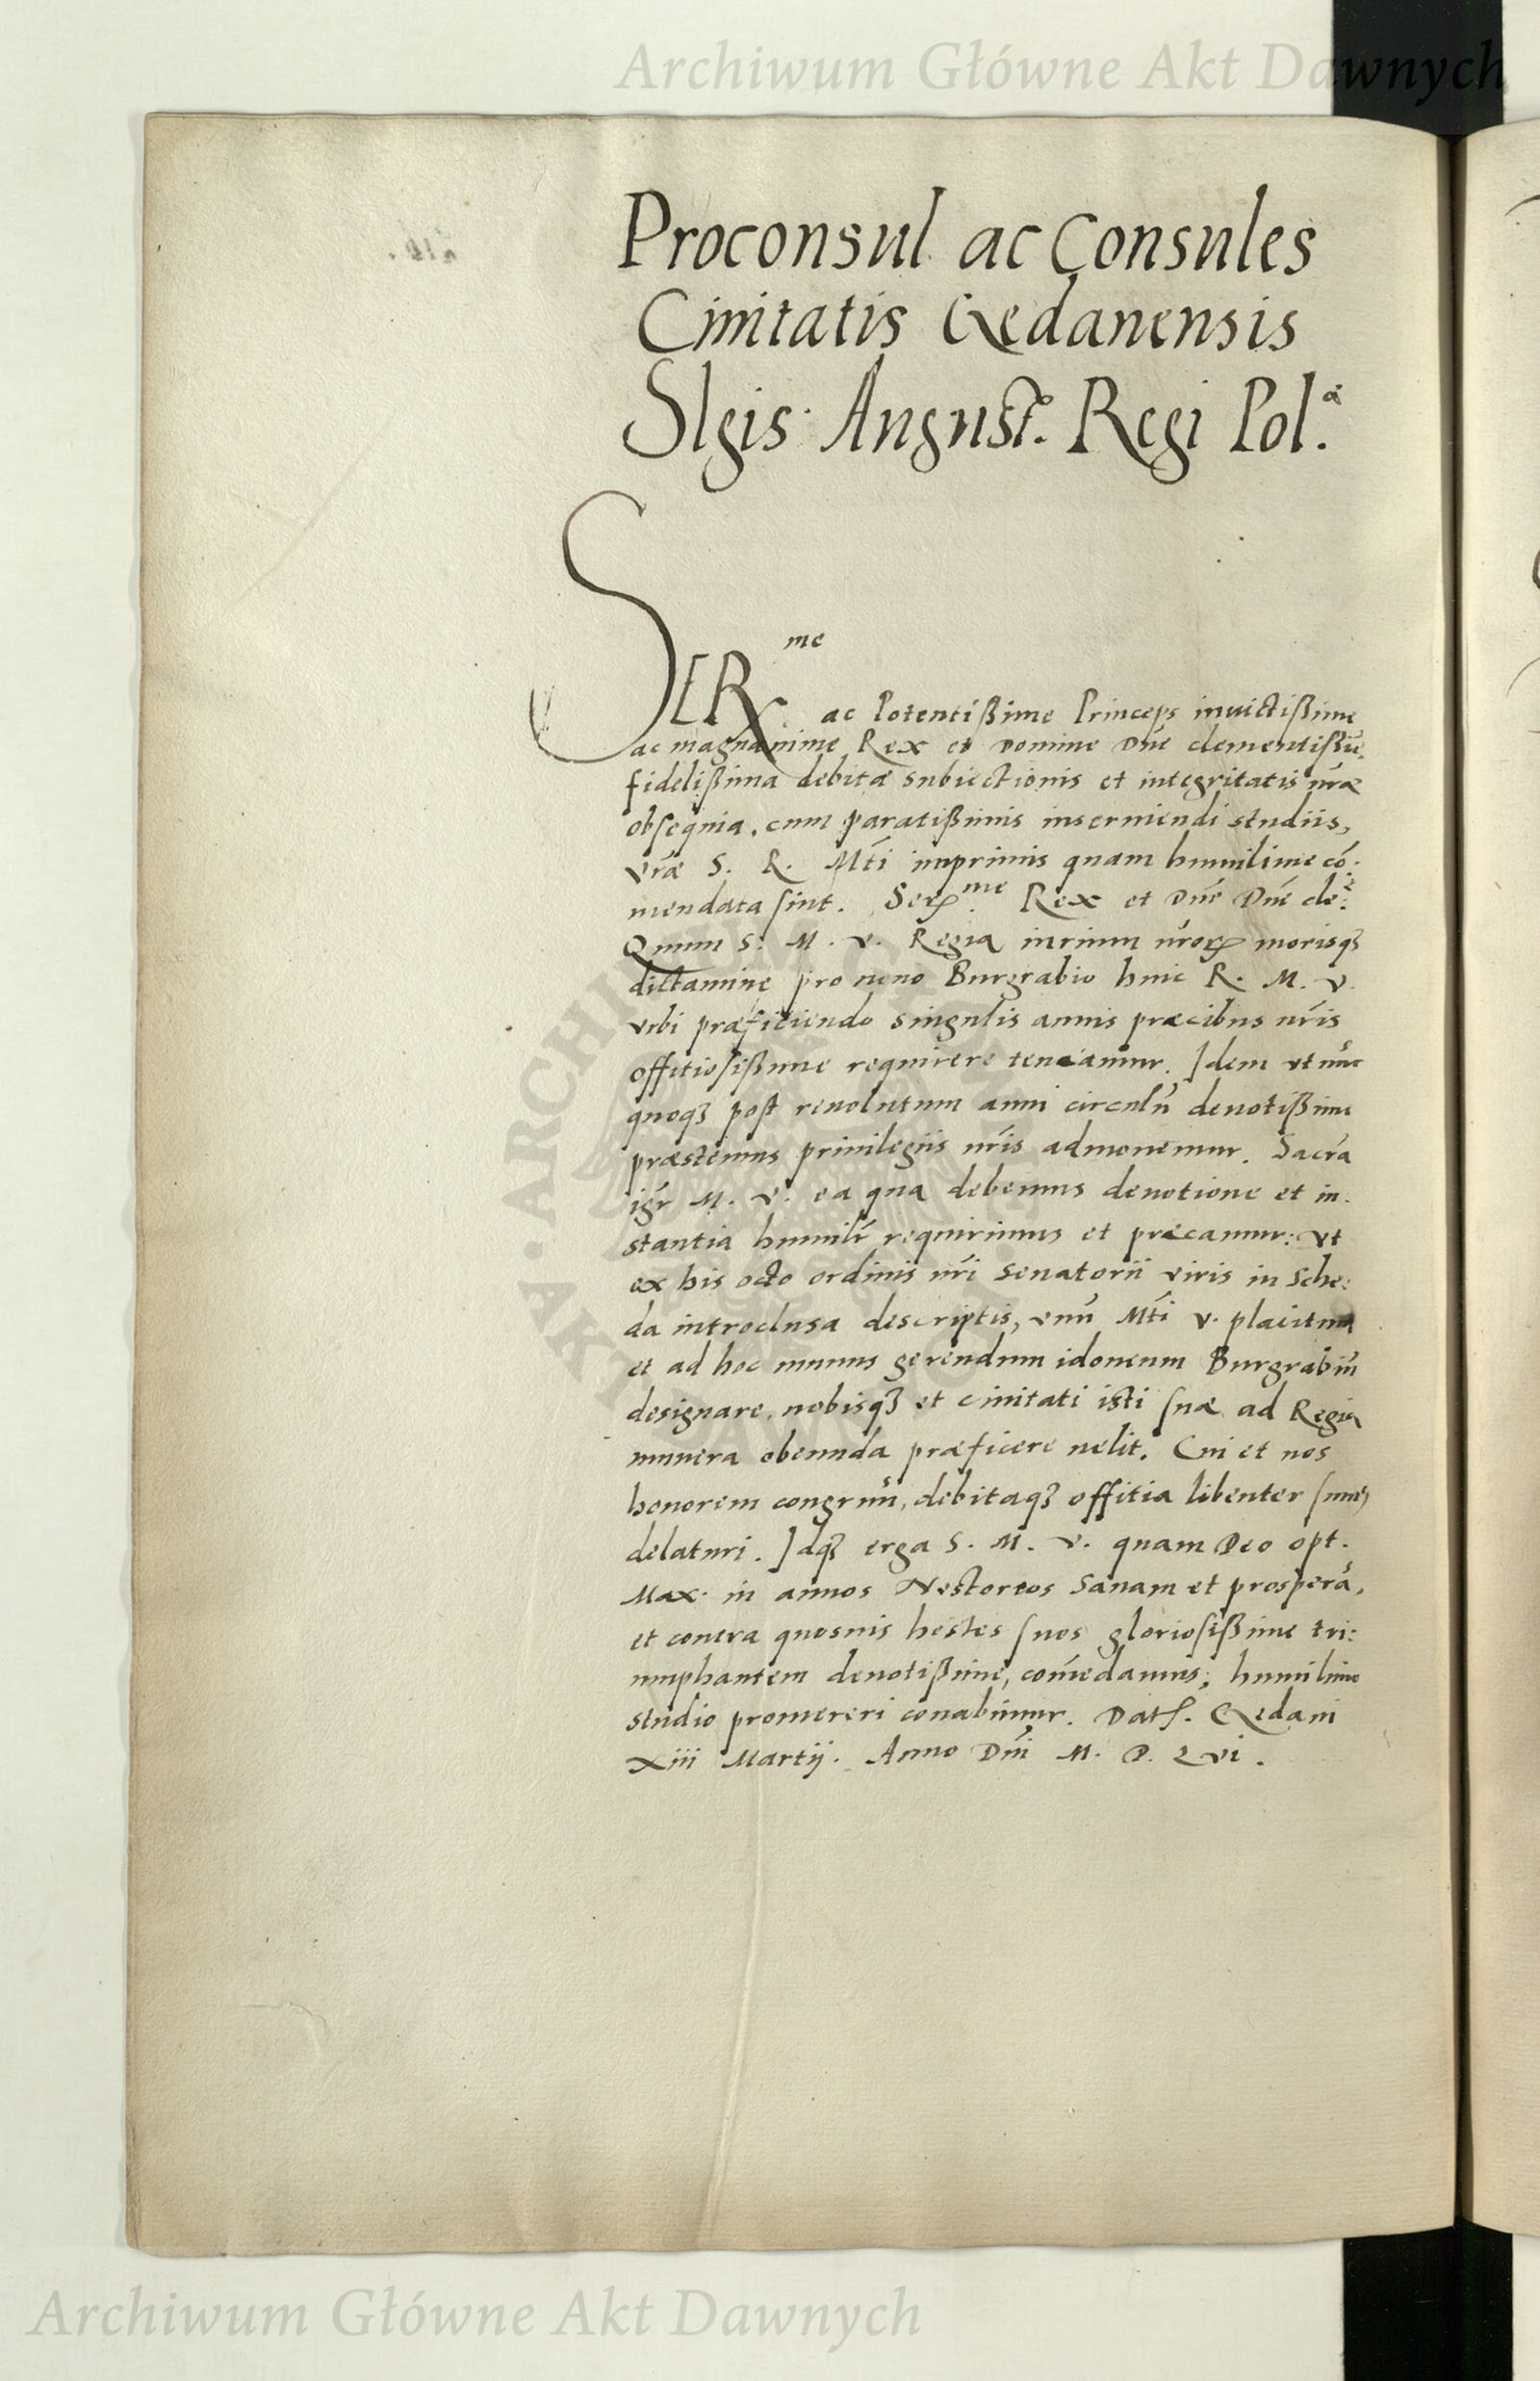 Archiwum Główne Akt Dawnych
Proconsul ac Consules
Ciuitatis Gedanensis
Sigis. August. Regi Pol.ᵃ
SERᵐᵉ ac Potentißime Princeps inuictißime
ac magnanime Rex et Domine Dn̄e clementißīe.
fidelißima debitæ subiectionis et integritatis nr̄æ
obsequia, cum paratißimis inseruiendi studiis,
vr̄æ S. R. Mt̄i imprimis quam humilime cō-
mendata sint. Ser.ᵐᵉ Rex et Dn̄e Dn̄e cle:
Quum S. M. v. Regia iurium nr̄oꝝ morisqꝫ
dictamine pro nouo Burgrabio huic R. M. v.
vrbi præficiendo singulis annis præcibus nr̄is
offitiosißime requirere teneamur. Idem vt nūc
quoqꝫ post reuolutum anni circulū deuotißime
præstemus priuilegiis nr̄is admonemur. Sacrā
igr̄ M. v. ea qua debemus deuotione et in-
stantia humilr̄ requirimus et præcamur: vt
ex his octo ordinis nr̄i Senatorii viris in Sche:
da introclusa descriptis, vnū Mt̄i v. placitum
et ad hoc munus gerendum idoneum Burgrabiū
designare, nobisqꝫ et ciuitati isti suæ ad Regia
munera obeunda præficere uelit. Cui et nos
honorem congruū, debitaqꝫ offitia libenter sumꝰ
delaturi. Idqꝫ erga S. M. v. quam Deo opt.
Max. in annos Nestoreos Sanam et prosperā,
et contra quosuis hostes suos gloriosißime tri:
umphantem deuotißime, com̄edamus, humilimo
studio promereri conabimur. Dat. Gedani
xiii Martij. Anno Dn̄i M. D. Lvi.
ARCHIWUM GŁÓWNE AKT DAWNYCH
Archiwum Główne Akt Dawnych